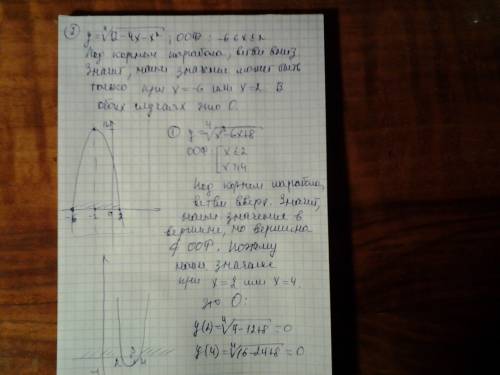 ② y = ∜12-4x-x²; ООФ: -6≤x≤2
Под корнем парабола, ветви вниз.
Значит, наим значение может быть
только при x=-6 или x=2. В
обоих случаях это 0.
① y = ∜x²-6x+8
ООФ [x≤2
x≥4
Под корнем парабола,
ветви вверх. Значит,
наим значение в
вершине, но вершина
∉ ООФ. Поэтому
наим значение
при x=2 или x=4.
это 0:
y(2)=∜4-12+8=0
y(4)=∜16-24+8=0
-6 -2 0 2
2 3 4
-1